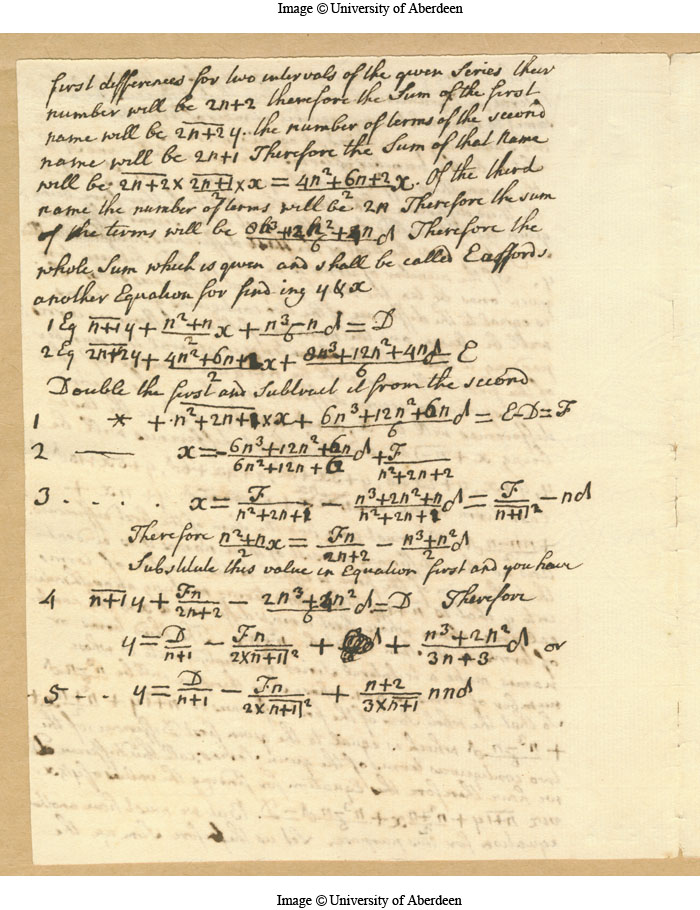 Image © University of Aberdeen
first differences for two intervals of the given Series their
number will be 2n+2 therefore the Sum of the first
name will be 2n+2 y. the number of terms of the second
name will be 2n+1 Therefore the Sum of that Name
will be 2n+2 × 2n+1/2 × x = 4n²+6n+2/2 x. Of the third
name the number of terms will be 2n Therefore the sum
of the terms will be 8n³+12n²+4n/6 d Therefore the
whole Sum which is given and shall be called E affords
another Equation for finding y & x
1 Eq n+1 y + n²+n/2 x + n³-n/6 d = D
2 Eq 2n+2 y + 4n²+6n+2/2 x + 8n³+12n²+4n/6 d = E
Double the first and Subtract it from the second
1 * + n²+2n+1 × x + 6n³+12n²+6n/6 d = E-D=F
2 x = -6n³+12n²+6n/6n²+12n+6 d + F/n²+2n+2
3 . . . . x = F/n²+2n+1 - n³+2n²+n/n²+2n+1 d = F/n+1|² - nd
Therefore n²+n/2 x = Fn/2n+2 - n³+n²/2 d
Substitute this value in Equation first and you have
4 n+1 y + Fn/2n+2 - 2n³+ n²/6 d = D Therefore
y = D/n+1 - Fn/2×n+1|² + d + n³+2n²/3n+3 d or
5 - - y = D/n+1 - Fn/2×n+1|² + n+2/3×n+1 nnd
Image © University of Aberdeen